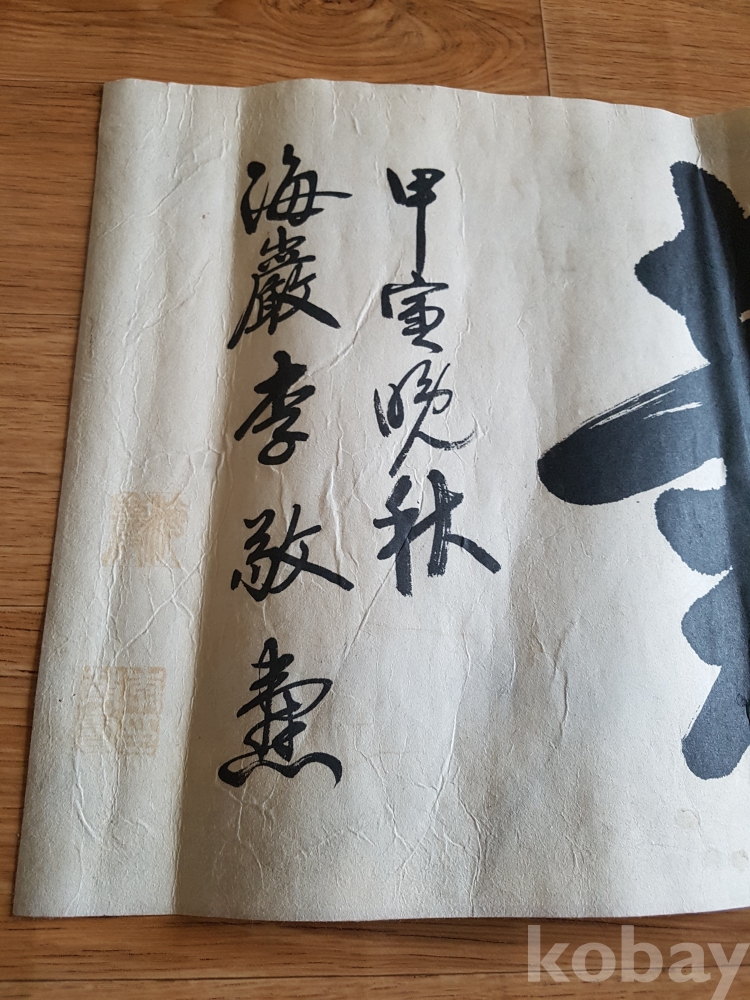 甲寅晩秋
海巖李敬燾
kobay